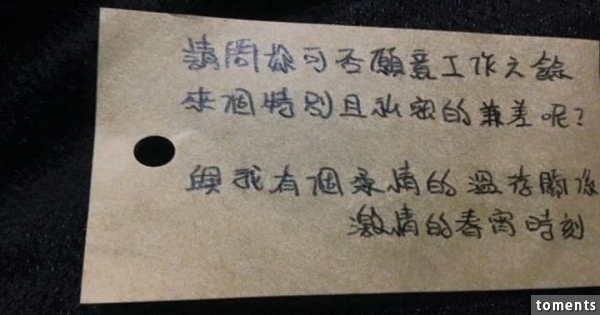 請問妳可否願意工作之餘
來個特別且私密的兼差呢?
與我有個柔情的溫存
激情的春宵時刻
toments